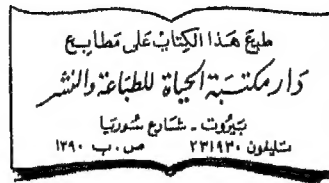 طبع هَذا الكِتابُ عَلى مَطابِع
دَار مكتَبة الحيَاة للطبَاعَة وَالنشر
بَيروت - شَارع سُوريَا
تليفون ٢٣١٩٣٠ ص . ب ١٣٩٠